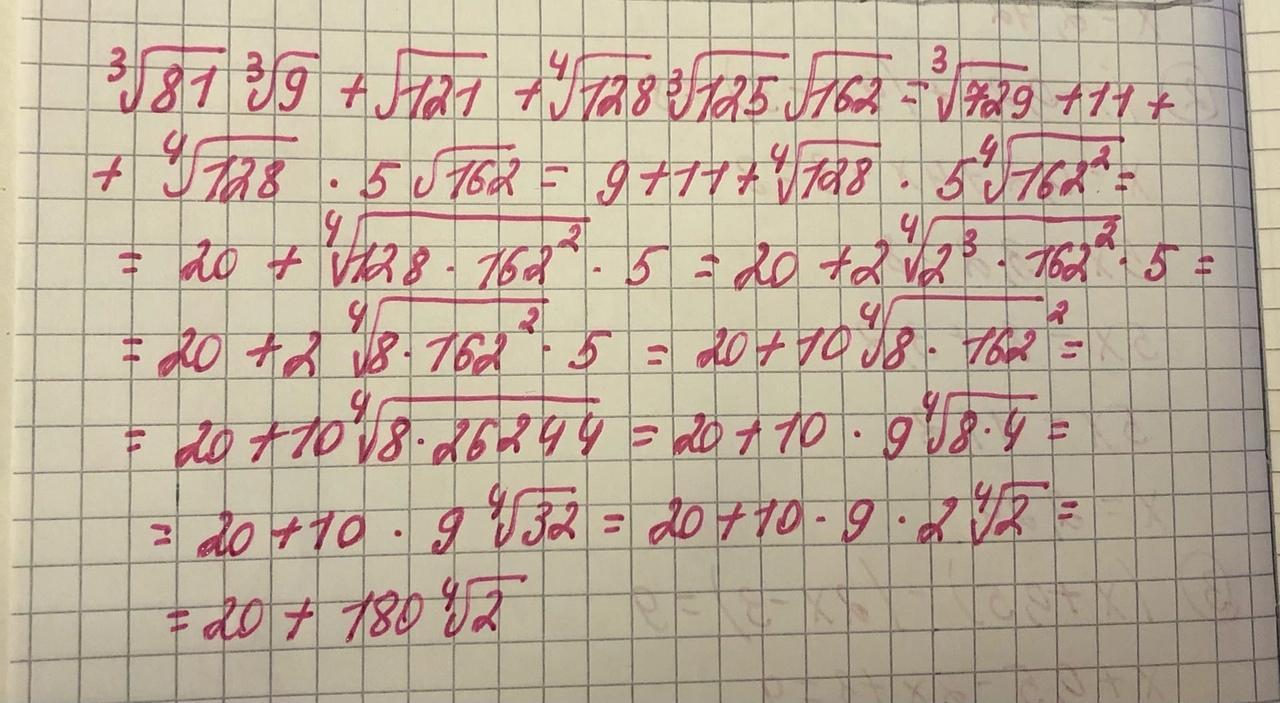 ∛81 ∛9 + √121 + ∜128 ∛125 √162 = ∛729 + 11 +
+ ∜128 · 5 √162 = 9 + 11 + ∜128 · 5 ∜(162²) =
= 20 + ∜(128 · 162²) · 5 = 20 + 2 ∜(2³ · 162²) · 5 =
= 20 + 2 ∜(8 · 162²) · 5 = 20 + 10 ∜(8 · 162)² =
= 20 + 10 ∜(8 · 26244) = 20 + 10 · 9 ∜(8 · 4) =
= 20 + 10 · 9 ∜32 = 20 + 10 · 9 · 2 ∜2 =
= 20 + 180 ∜2